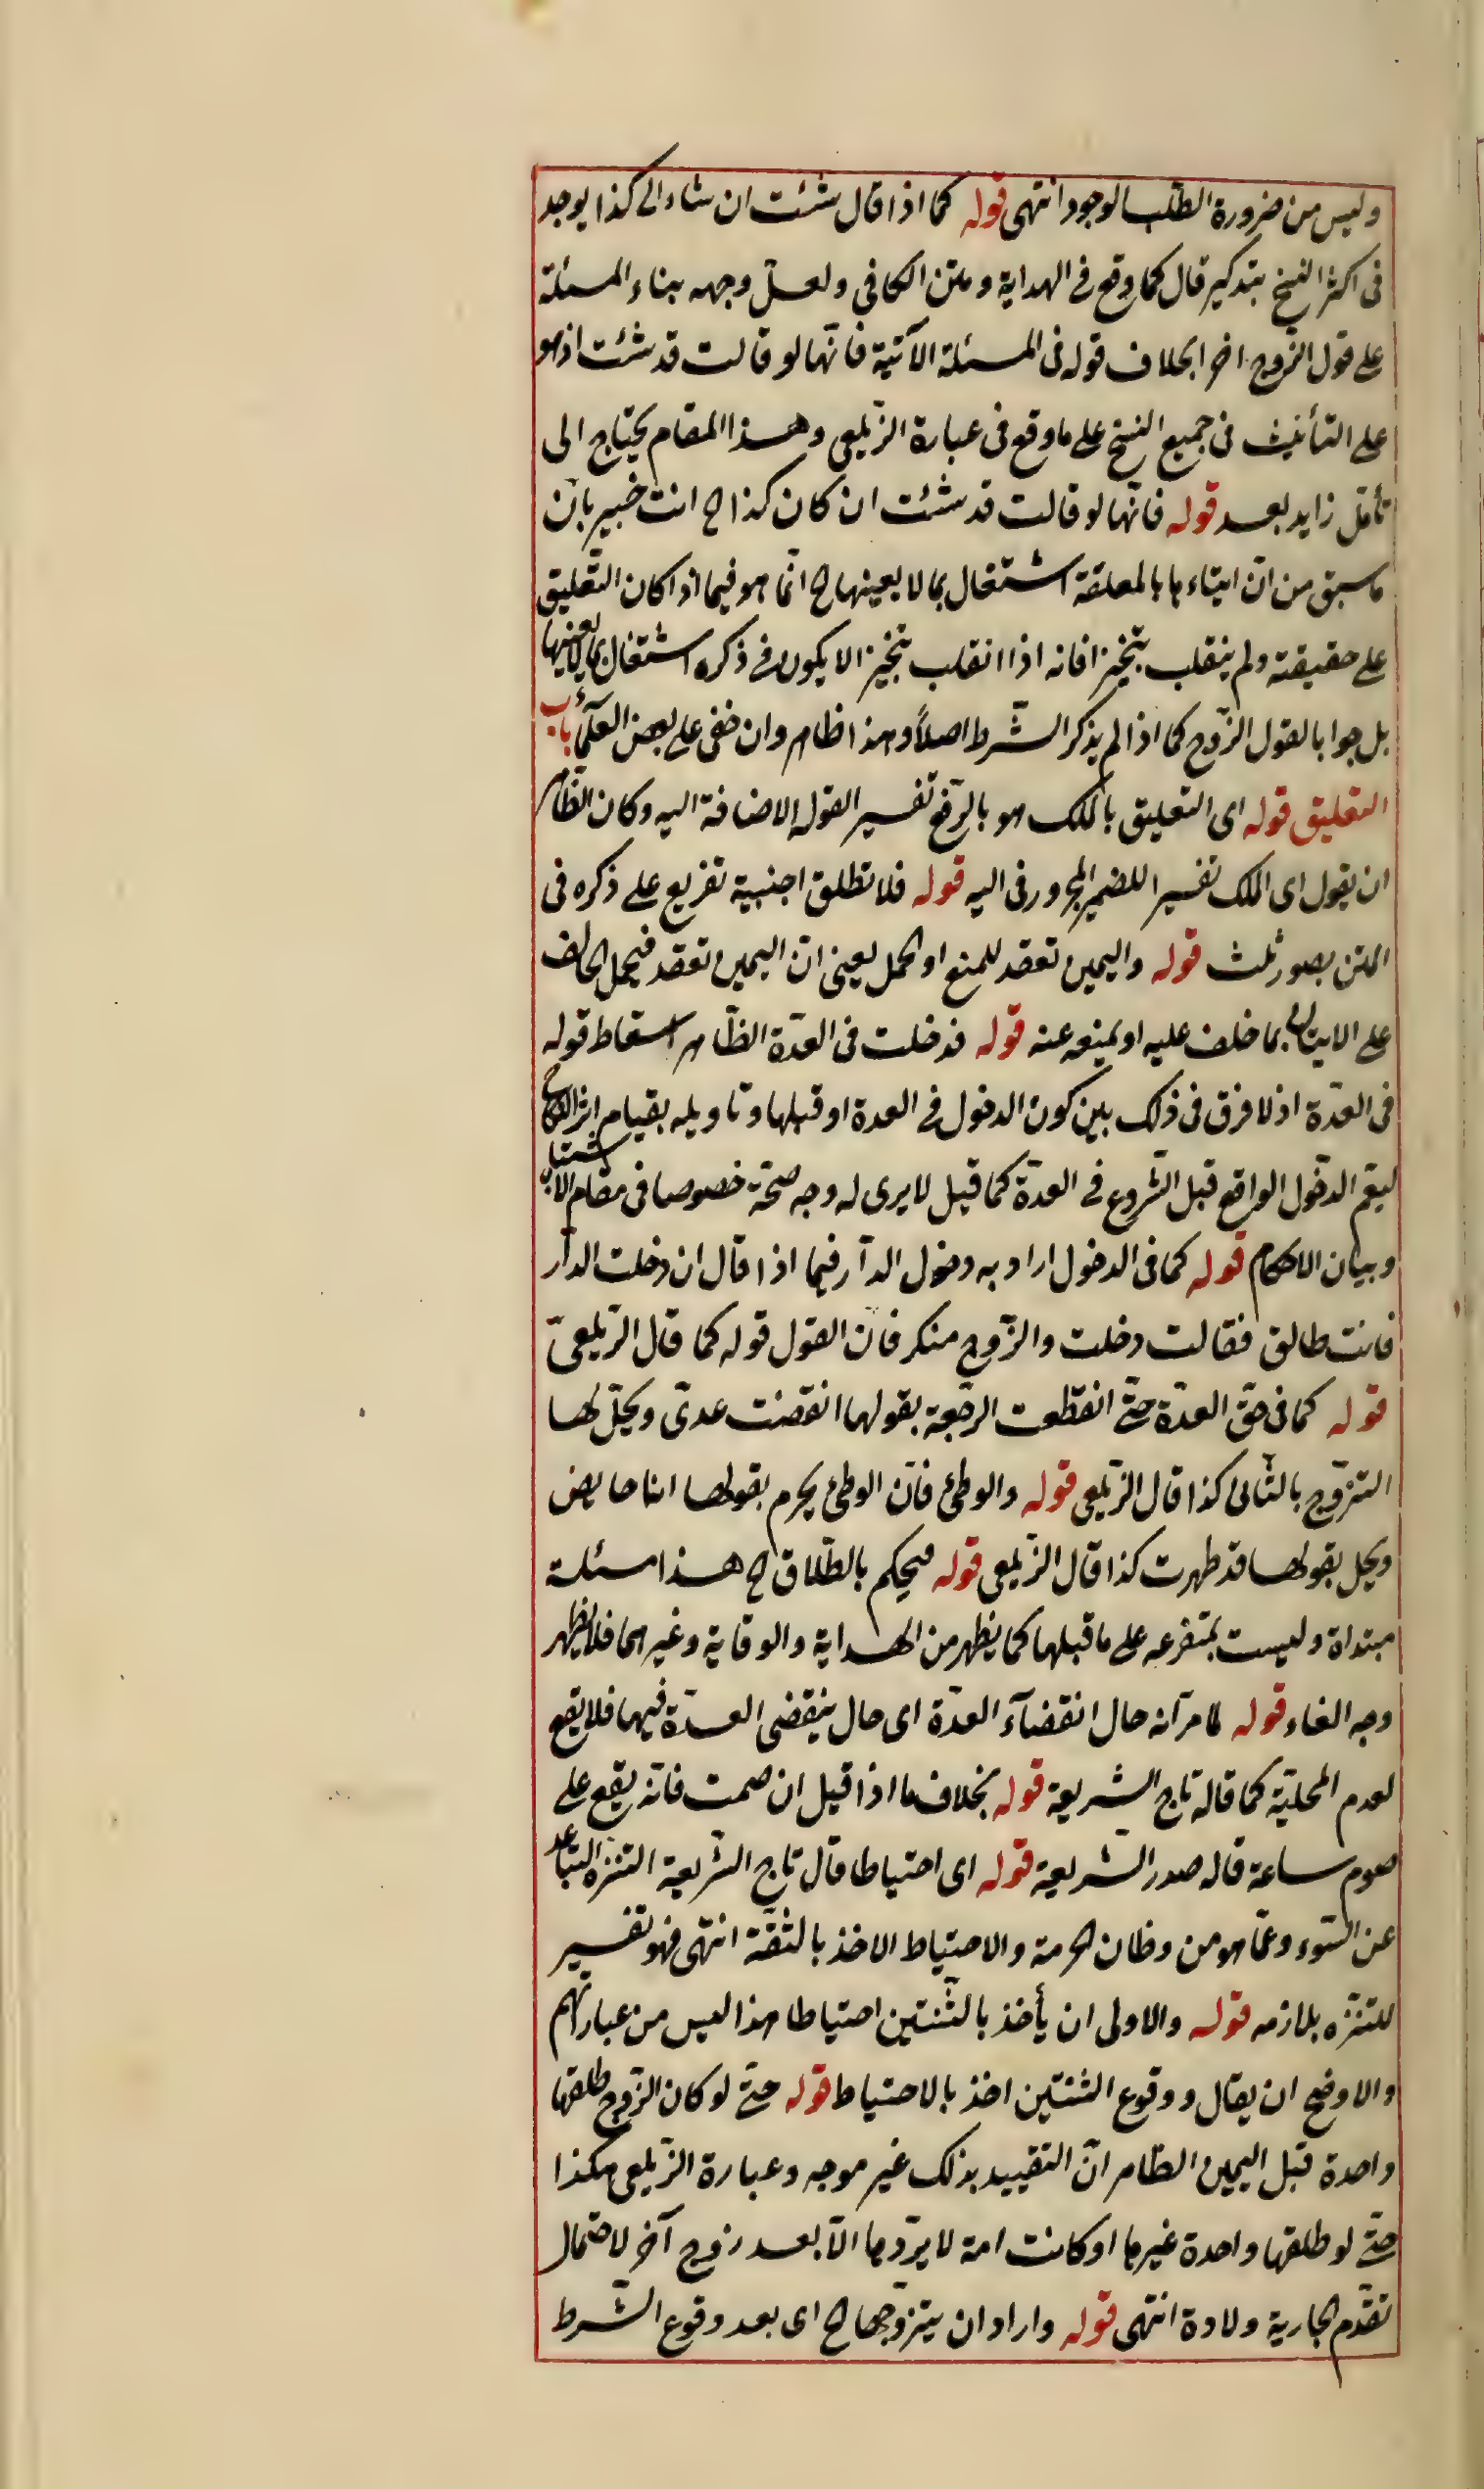 وليس من ضرورة الطلب الوجود انتهى قوله كما اذا قال شئت ان شاء الى كذا يوجد
فى اكثر النسخ بتذكير قال كما وقع فى الهداية ومتن الكافى ولعل وجهه بناء المسئلة
على قول الزوج اخرا بخلاف قوله فى المسئلة الآتية فانها لو قالت قد شئت اذ هو
على التأنيث فى جميع النسخ على ما وقع فى عبارة الزيلعى وهذا المقام يحتاج الى
تأمل زايد بعد قوله فانها لو قالت قد شئت ان كان كذا الخ انت خبير بان
ما سبق من ان ايتاءها بالمعلقة اشتغال بما لا يعينها الخ انما هو فيما اذا كان التعليق
على حقيقته ولم ينقلب تنجيزا فانه اذا انقلب تنجيزا لا يكون فى ذكره اشتغال بما لا يعنيها
بل جوابا لقول الزوج كما اذا لم يذكر الشرط اصلا وهذا ظاهر وان خفى على بعض العلماء باب
التعليق قوله اى التعليق بالملك هو بالرفع تفسير القوله الاضافة اليه وكان الظاهر
ان يقول اى الملك تفسيرا للضمير المجرور فى اليه قوله فلا تطلق اجنبية تفريع على ذكره فى
المتن بصور ثلث قوله واليمين تعقد للمنع او الحمل يعنى ان اليمين تعقد فيحمل الحالف
على الايتان بما خلف عليه او يمنعه عنه قوله فدخلت فى العدة الظاهر اسقاط قوله
فى العدة اذ لا فرق فى ذلك بين كون الدخول فى العدة او قبلها وتاويله بقيام اثر النكاح
ليعم الدخول الواقع قبل الشروع فى العدة كما قيل لا يرى له وجه صحة خصوصا فى مقام الاشتباه
وبيان الاحكام قوله كما فى الدخول اراد به دخول الدار فيما اذا قال ان دخلت الدار
فانت طالق فقالت دخلت والزوج منكر فان القول قوله كما قال الزيلعى
قوله كما فى حق العدة حتى انقطعت الرجعة بقولها انقضت عدتى ويحل لها
التزوج بالثانى كذا قال الزيلعى قوله والوطئ فان الوطئ يحرم بقولها انا حايض
ويحل بقولها قد طهرت كذا قال الزيلعى قوله فيحكم بالطلاق الخ هذا مسئلة
مبتداة وليست بمتفرعه على ما قبلها كما يظهر من الهداية والوقاية وغيرهما فلا يظهر
وجه الفاء قوله لما مر انه حال انقضآء العدة اى حال ينقضى العدة فيها فلا يقع
لعدم المحلية كما قاله تاج الشريعة قوله بخلاف ما اذا قيل ان صمت فانه يقع على
صوم ساعة قاله صدر الشريعة قوله اى احتياطا قال تاج الشريعة التنزه التباعد
عن السوء وعما هو من وظان الحرمة والاحتياط الاخذ بالثقة انتهى فهو تفسير
للتنزه بلازمه قوله والاولى ان يأخذ بالثنتين احتياطا هذا ليس من عباراتهم
والاوضح ان يقال ووقوع الثنتين اخذ بالاحتياط قوله حتى لو كان الزوج طلقها
واحدة قبل اليمين الظاهر ان التقييد بذلك غير موجه وعبارة الزيلعى هكذا
حتى لو طلقها واحدة غيرها او كانت امة لا يردها الا بعد زوج آخر لاحتمال
تقدم الجارية ولادة انتهى قوله واراد ان يتزوجها الخ اى بعد وقوع الشرط